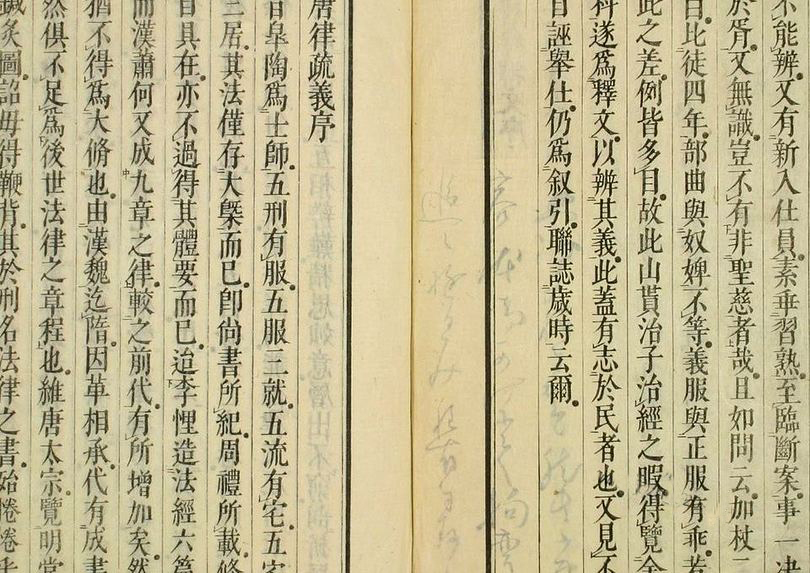 不能辨又有新入仕員素乖習熟至臨斷案事一决
於胥又無識豈不有非聖慈者哉且如問云加杖二
曰比徒四年部曲與奴婢不等義服與正服有乖若
此之差例皆多目故此山貰治子治經之暇得覽金
科遂爲釋文以辨其義此蓋有志於民者也又見不
自誣舉仕仍爲叙引聯誌歲時云爾
唐律疏義序
昔皐陶爲士師五刑有服五服三就五流有宅五宅
三居其法僅存大槩而已卽尚書所紀周禮所載條
目具在亦不過得其體要而已迨李悝造法經六篇
而漢蕭何又成九章之律較之前代有所增加矣然
猶不得爲大脩也由漢魏迄隋因革相承代有成書
然俱不足爲後世法律之章程也維唐太宗覽明堂
鍼灸圖詔毋得鞭背其於刑名法律之書始惓惓乎